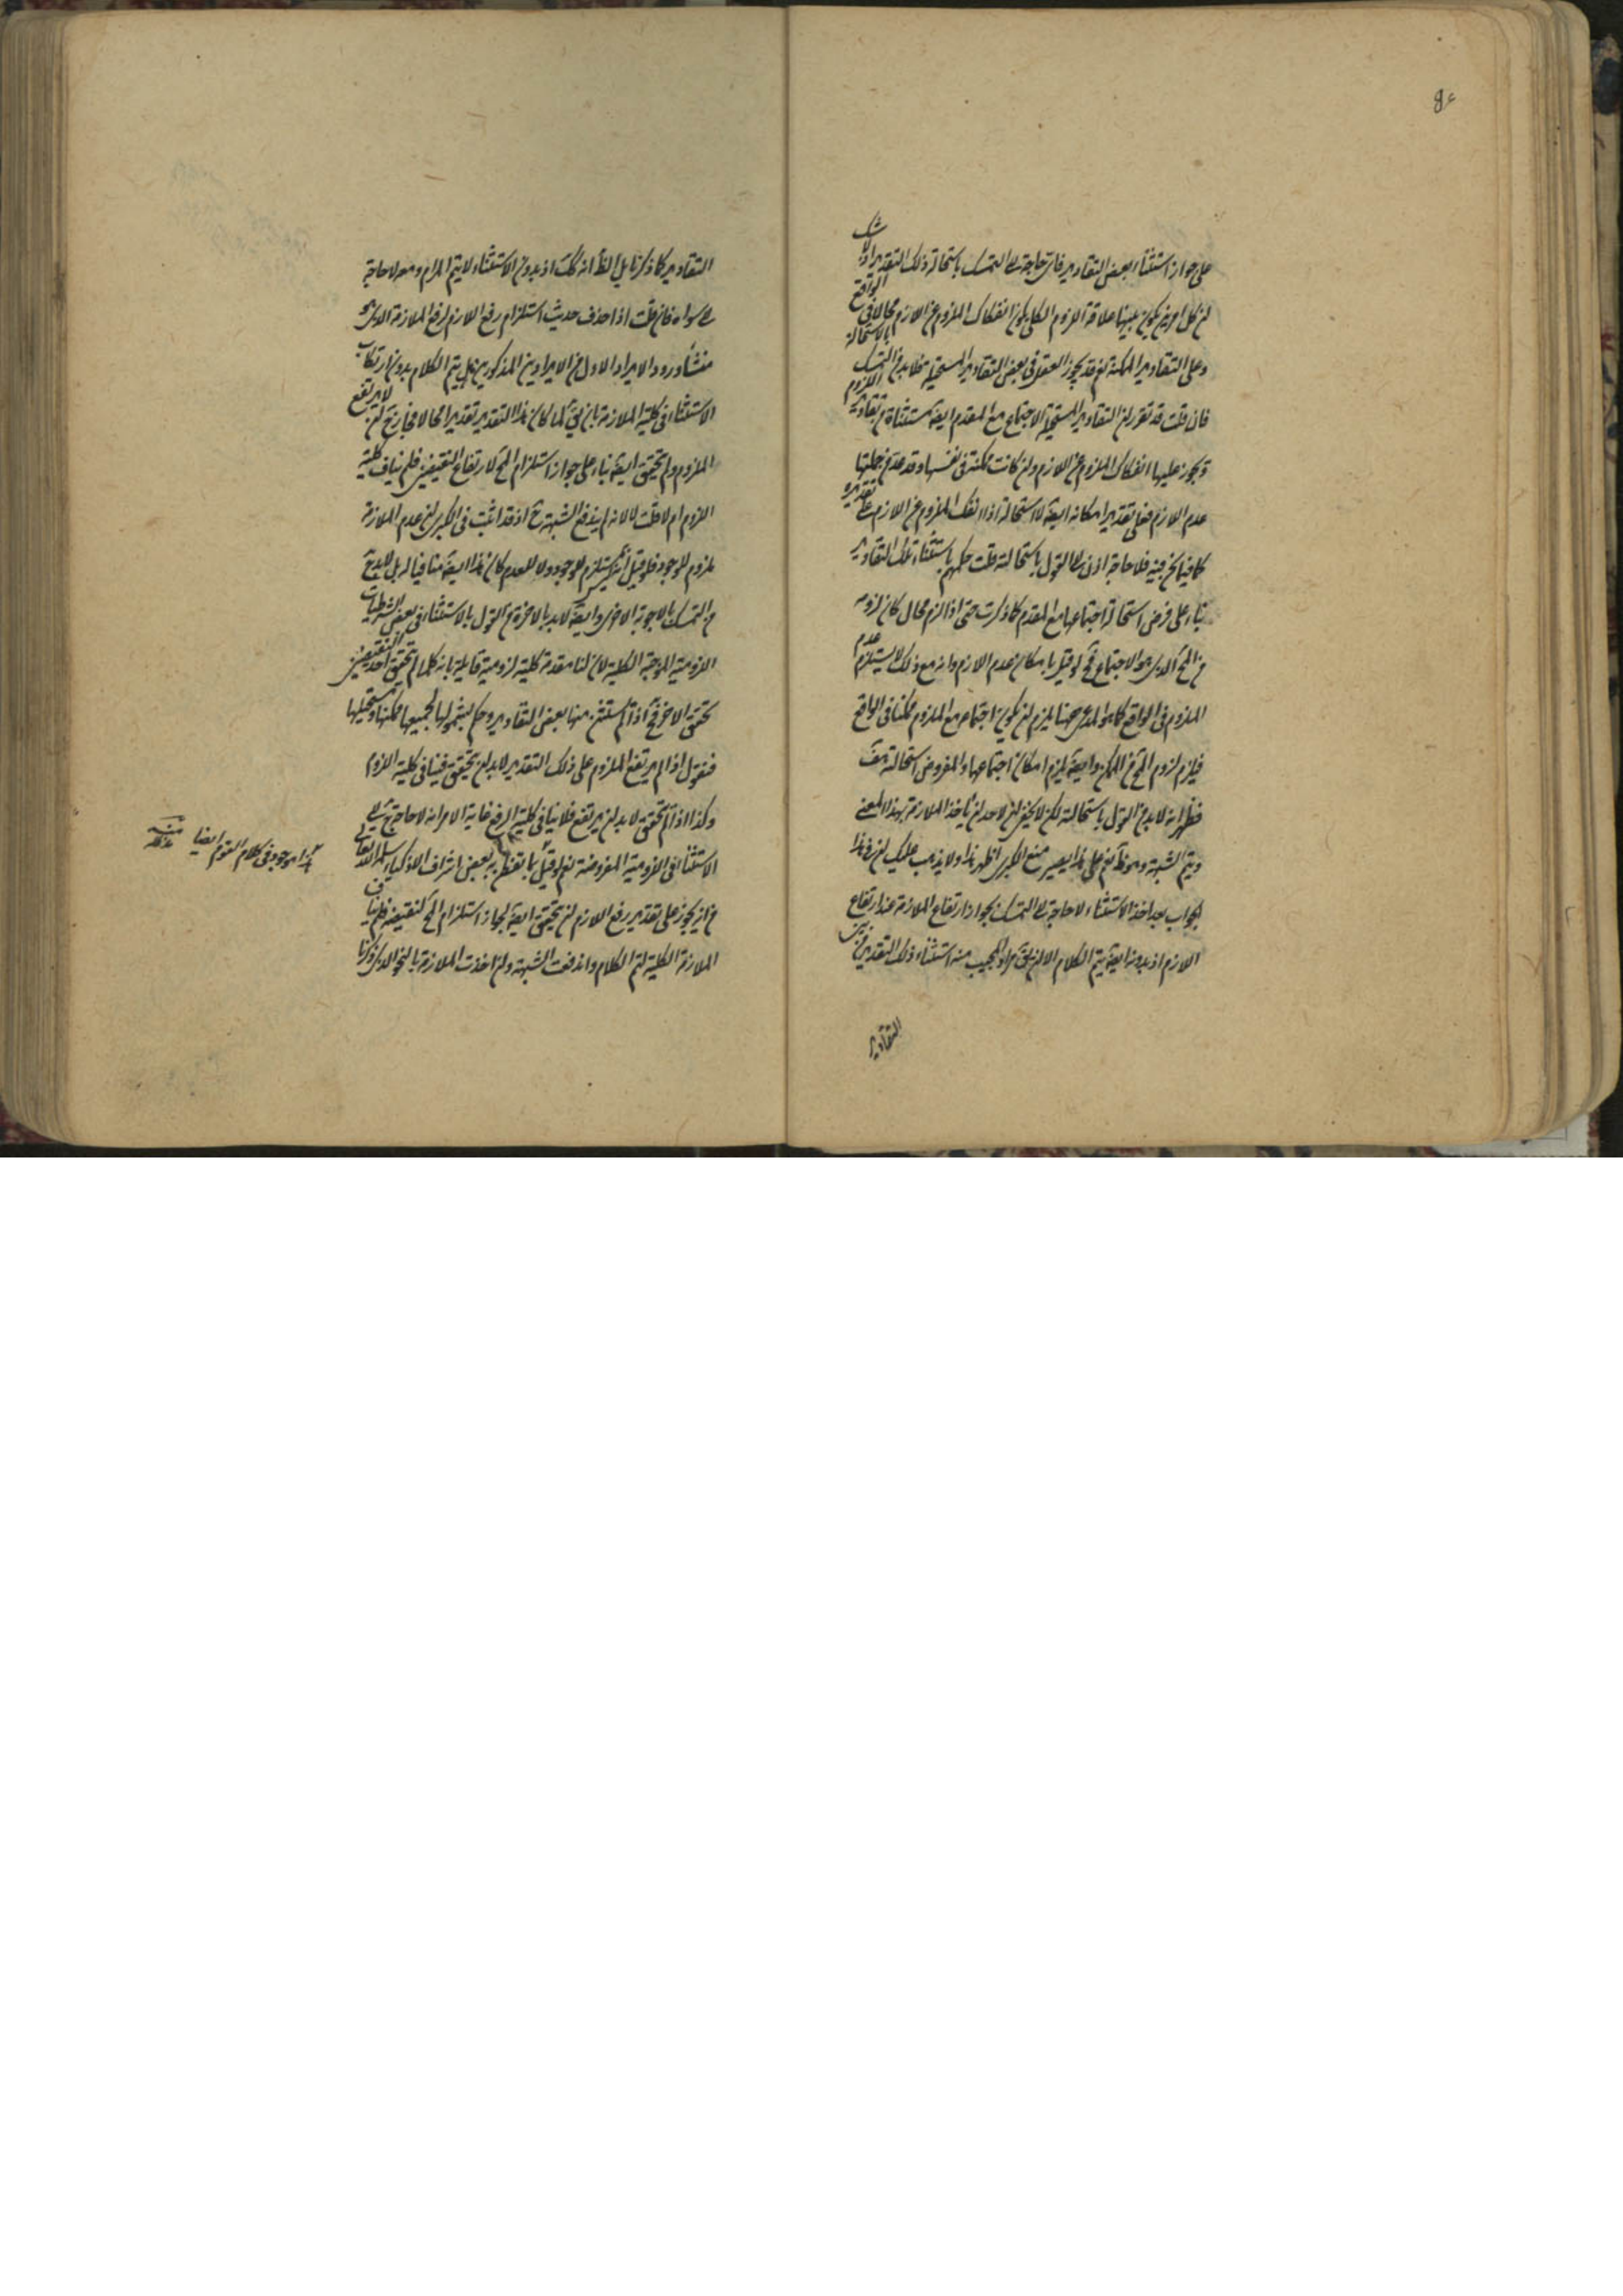 على جواز استثناء بعض التقادير فاى حاجة الى التمسك باستحالة ذلك التقدير اذ لا شك
ان كل امرين يكون بينهما علاقة اللزوم الكلى يكون انفكاك الملزوم عن اللازم محالا فى الواقع
وعلى التقادير الممكنة نعم قد يجوز العقل فى بعض التقادير المستحيلة فلا بد من التمسك بالاستحالة
فان قلت قد تقرر ان التقادير المستحيلة الاجتماع مع المقدم ايضا مستثناة من تقادير اللزوم
ويجوز عليها انفكاك الملزوم عن اللازم وان كانت ممكنة فى نفسها وقد عد من جملتها
عدم اللازم فعلى تقدير امكانه ايضا لا استحالة اذا انفك الملزوم عن اللازم على تقديره
كما فيما نحن فيه فلا حاجة اذن الى القول باستحالته قلت حكمهم باستثناء تلك التقادير
بناء على فرض استحالة اجتماعها مع المقدم كما ذكرت حتى اذا لزم محال كان لزومه
من المح الذى هو الاجتماع فح لو قيل بامكان عدم اللازم وانه مع ذلك لا يستلزم عدم
الملزوم فى الواقع كما هو المدعى ههنا يلزم ان يكون اجتماعه مع الملزوم ممكنا فى الواقع
فيلزم لزوم المح من الممكن وايضا يلزم امكان اجتماعهما والمفروض استحالته هف
فظهر انه لا بد من القول باستحالته لكن لا يخفى ان لاحد ان يأخذ الملازمة بهذا المعنى
ويتم الشبهة وهو ظ نعم على هذا يصير منع الكبرى اظهر هذا ولا يذهب عليك ان فى هذا
الجواب بعد اخذ الاستثناء لا حاجة الى التمسك بجواز ارتفاع الملازمة عند ارتفاع
اللازم اذ بدونه ايضا يتم الكلام الا ان يق مراد المجيب منه استثناء ذلك التقدير من بين
التقادير
التقادير كما ذكرنا بل الظ انه كك اذ بدون الاستثناء لا يتم المرام ومعه لا حاجة
الى سواه فان قلت اذا حذف حديث استلزام رفع اللازم لرفع الملازمة الذى هو
منشأ ورود الايراد الاول من الايرادين المذكورين هل يتم الكلام بدون ارتكاب
الاستثناء فى كلية الملازمة بان يق لما كان هذا التقدير تقديرا محالا فجاز ح ان لا يرتفع
الملزوم وان يتحقق ايضا بناء على جواز استلزام المح لارتفاع النقيضين فلم يناف كلية
اللزوم ام لا قلت لا لانه لم يندفع الشبهة ح اذ قد اثبت فى الكبرى ان عدم الملازمة
ملزوم للوجود فلو قيل انه ليس يستلزم للوجود ولا للعدم كان هذا ايضا منافيا له بل لا بد ح
من التمسك بالاجوبة الاخرى وايضا لا بد بالاخرة من القول بالاستثناء فى بعض الشرطيات
اللزومية الموجبة الكلية لان لنا مقدمة كلية لزومية قايلة بانه كلما لم يتحقق احد النقيضين
تحقق الاخر فح اذا لم يستثن منها بعض التقادير وحكم بشمولها لجميعها ممكنها ومستحيلها
فنقول اذا لم يرتفع الملزوم على ذلك التقدير لا بد ان يتحقق فينافى كلية اللزوم
وكذا اذا لم يتحقق لا بد ان يرتفع فلا ينافى كلية الرفع غاية الامر انه لا حاجة ح الى
الاستثناء فى اللزومية المفروضة نعم لو قيل بما تفطن به بعض اشراف الاذكياء سلمه الله تعالى
من انه يجوز على تقدير رفع اللازم ان يتحقق ايضا لجواز استلزام المح لنقيضه فلم يناف
الملازمة الكلية لتم الكلام واندفعت الشبهة وان اخذت الملازمة بالنحو الذى ذكرنا
هذا موجود فى كلام القوم ايضا منه